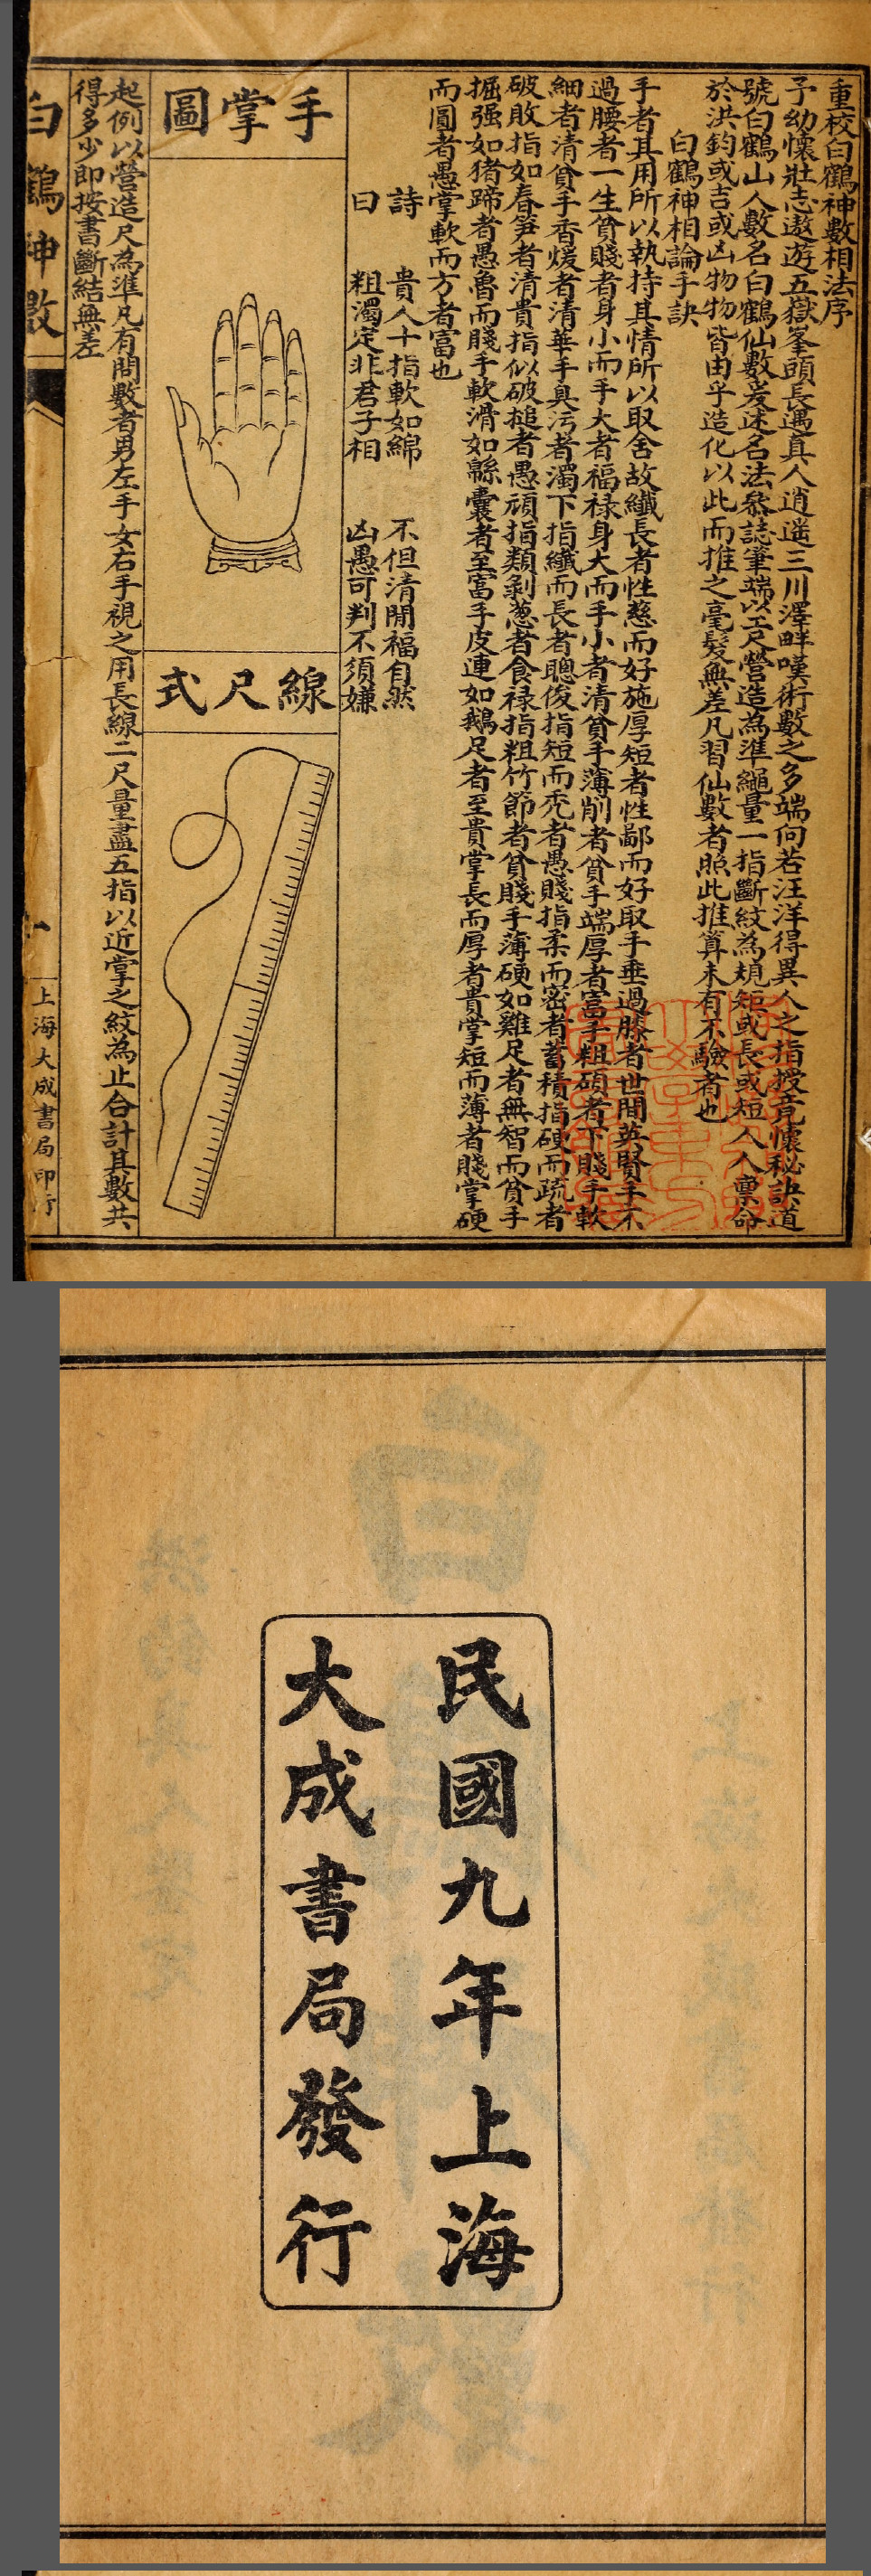 重校白鶴神數相法序
予幼懷壯志遨遊五嶽峯頭長遇真人逍遙三川澤畔嘆術數之多端何若汪洋得異人之指授竟懷秘訣道
號白鶴山人數名白鶴仙數爰述名法叅誌筆端以工尺營造為準繩量一指斷紋為規矩或長或短人人稟命
於洪鈞或吉或凶物物皆由乎造化以此而推之毫髮無差凡習仙數者照此推算未有不驗者也
白鶴神相論手訣
手者其用所以執持其情所以取舍故纖長者性慈而好施厚短者性鄙而好取手垂過膝者世間英賢手不
過腰者一生貧賤者身小而手大者福祿身大而手小者清貧手薄削者貧手端厚者富手粗碩者下賤手軟
細者清貧手香煖者清華手臭污者濁下指纖而長者聰俊指短而秃者愚賤指柔而密者蓄積指硬而疏者
破敗指如春笋者清貴指似破搥者愚頑指類剝葱者食祿指粗竹節者貧賤手薄硬如雞足者無智而貧手
掘强如猪蹄者愚魯而賤手軟滑如緜囊者至富手皮連如鵝足者至貴掌長而厚者貴掌短而薄者賤掌硬
而圓者愚掌軟而方者富也
詩 貴人十指軟如綿 不但清閒福自然
曰 粗濁定非君子相 凶愚可判不須嫌
手掌圖
線尺式
起例以營造尺為準凡有問數者男左手女右手視之用長線二尺量盡五指以近掌之紋為止合計其數共
得多少即按書斷結無差
白鶴神數
一
上海大成書局印行
民國九年上海
大成書局發行